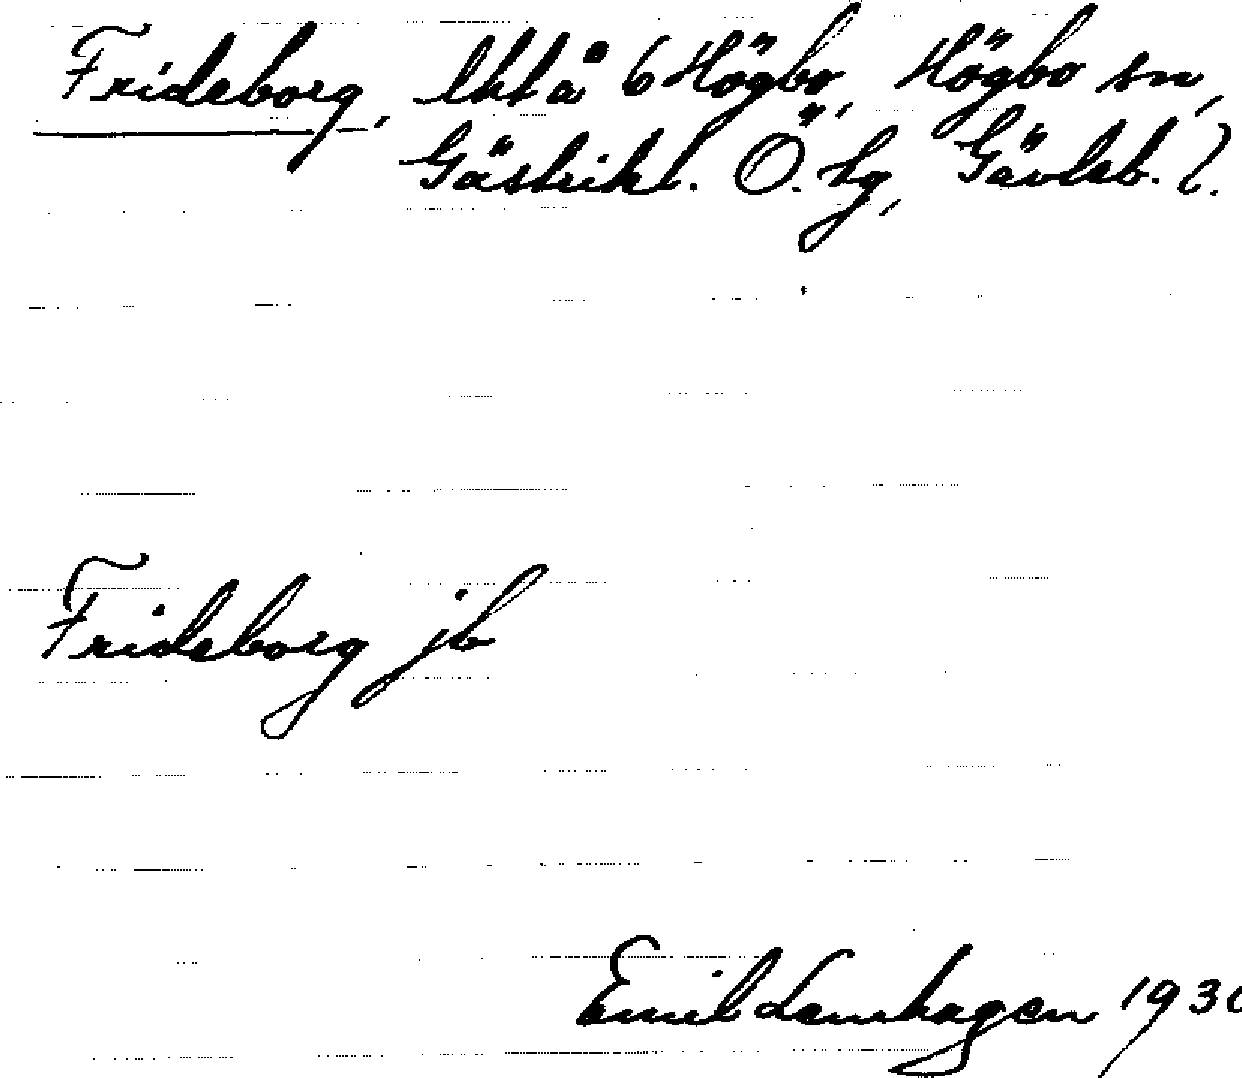 Frideborg, lht å 6 Högbo, Högbo sn,
Gästrikl. Ö. tg, Gävleb. l.
Frideborg jb
Emil Lenhagen